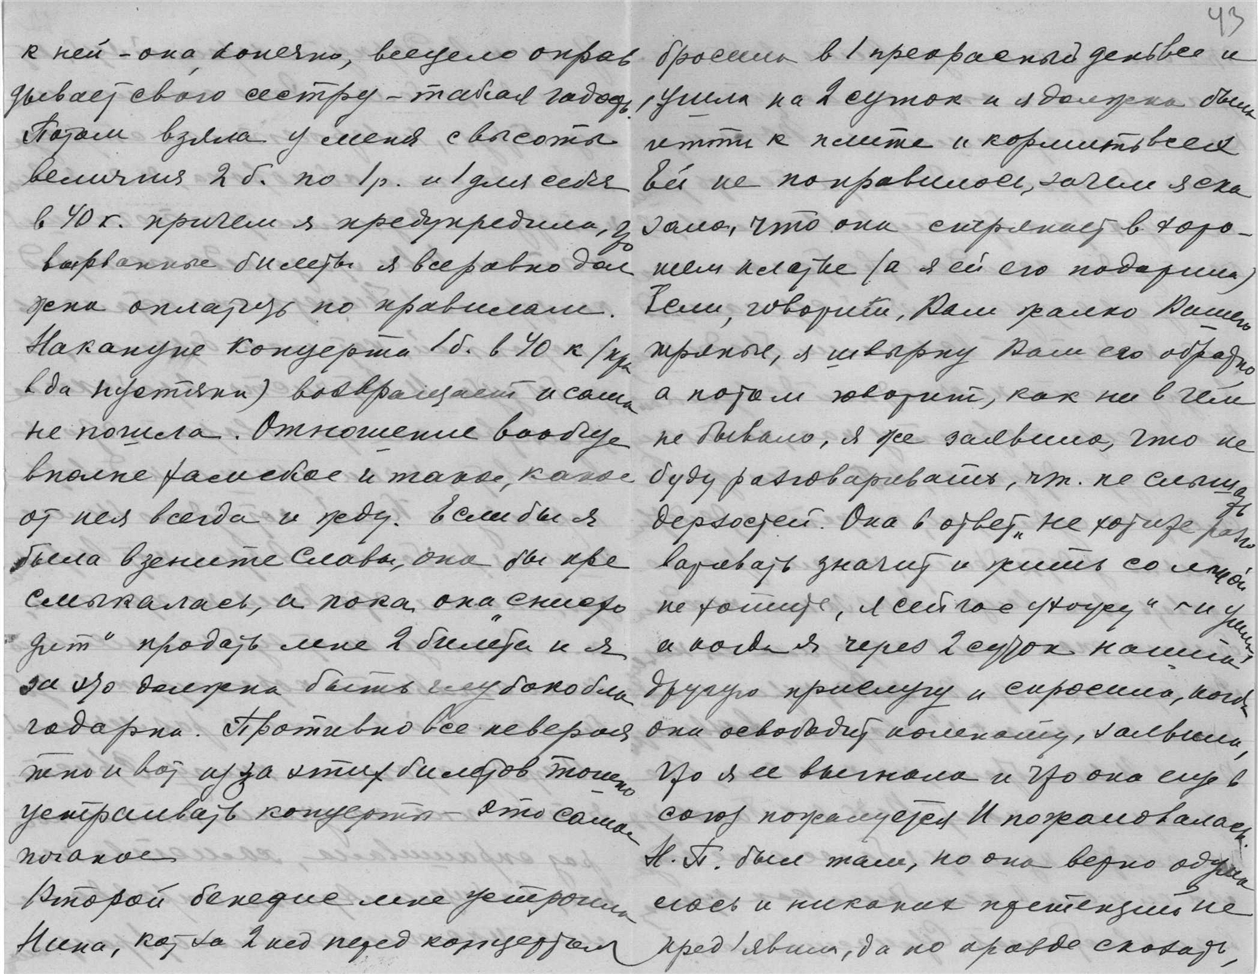 43
к ней – она, конечно, всецело оправ
дывает свою сестру – такая гадость.
Потом взяла у меня с высоты
величия 2 б. по 1 р. и 1 для себя
в 40 к. причем я предупредила, что
вырванные билеты я все равно дол
жна оплатить по правилам.
Накануне концерта 1 б. в 40 к (пра
вда пустяки) возвращает и сама
не пошла. Отношение вообще
вполне хамское и такое, какое
от нея всегда и жду. Если бы я
была в зените славы, она бы пре
смыкалась, а пока она „снисхо
дит" продать мне 2 билета и я
за это должна быть глубоко бла
годарна. Противно все невероя
тно и вот из за этих билетов тошно
устраивать концерты – это самое
поганое
Второй бенефис мне устроила
Нина, кот за 2 нед перед концертом
бросила в 1 прекрасный день все и
ушла на 2 суток и я должна была
итти к плите и кормить всех
Ей не понравилось, зачем я ска
зала, что она стряпает в хоро–
шем платье (а я ей его подарила)
Если, говорит, Вам жалко Вашего
тряпья, я швырну Вам его обратно
а потом говорит, как ни в чем
не бывало, я же заявила, что не
буду разговаривать, чт. не слышать
дерзостей. Она в ответ „не хотите разго
варивать значит и жить со мной
не хотите, я сейчас ухожу" – и ушла
а когда я через 2 суток нашла
другую прислугу и спросила, когда
она освободит комнату, заявила,
что я ее выгнала и что она еще в
союз пожалуется И пожаловалась.
Н. П. был там, но она верно одума
лась и никаких претензий не
пред'явила, да по правде сказать,